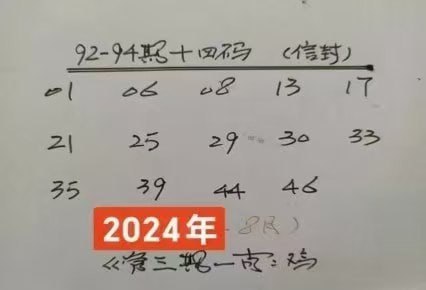 92-94期十四码 (信封)
01 06 08 13 17
21 25 29 30 33
35 39 44 46
2024年 -8月)
《第三期一肖:鸡